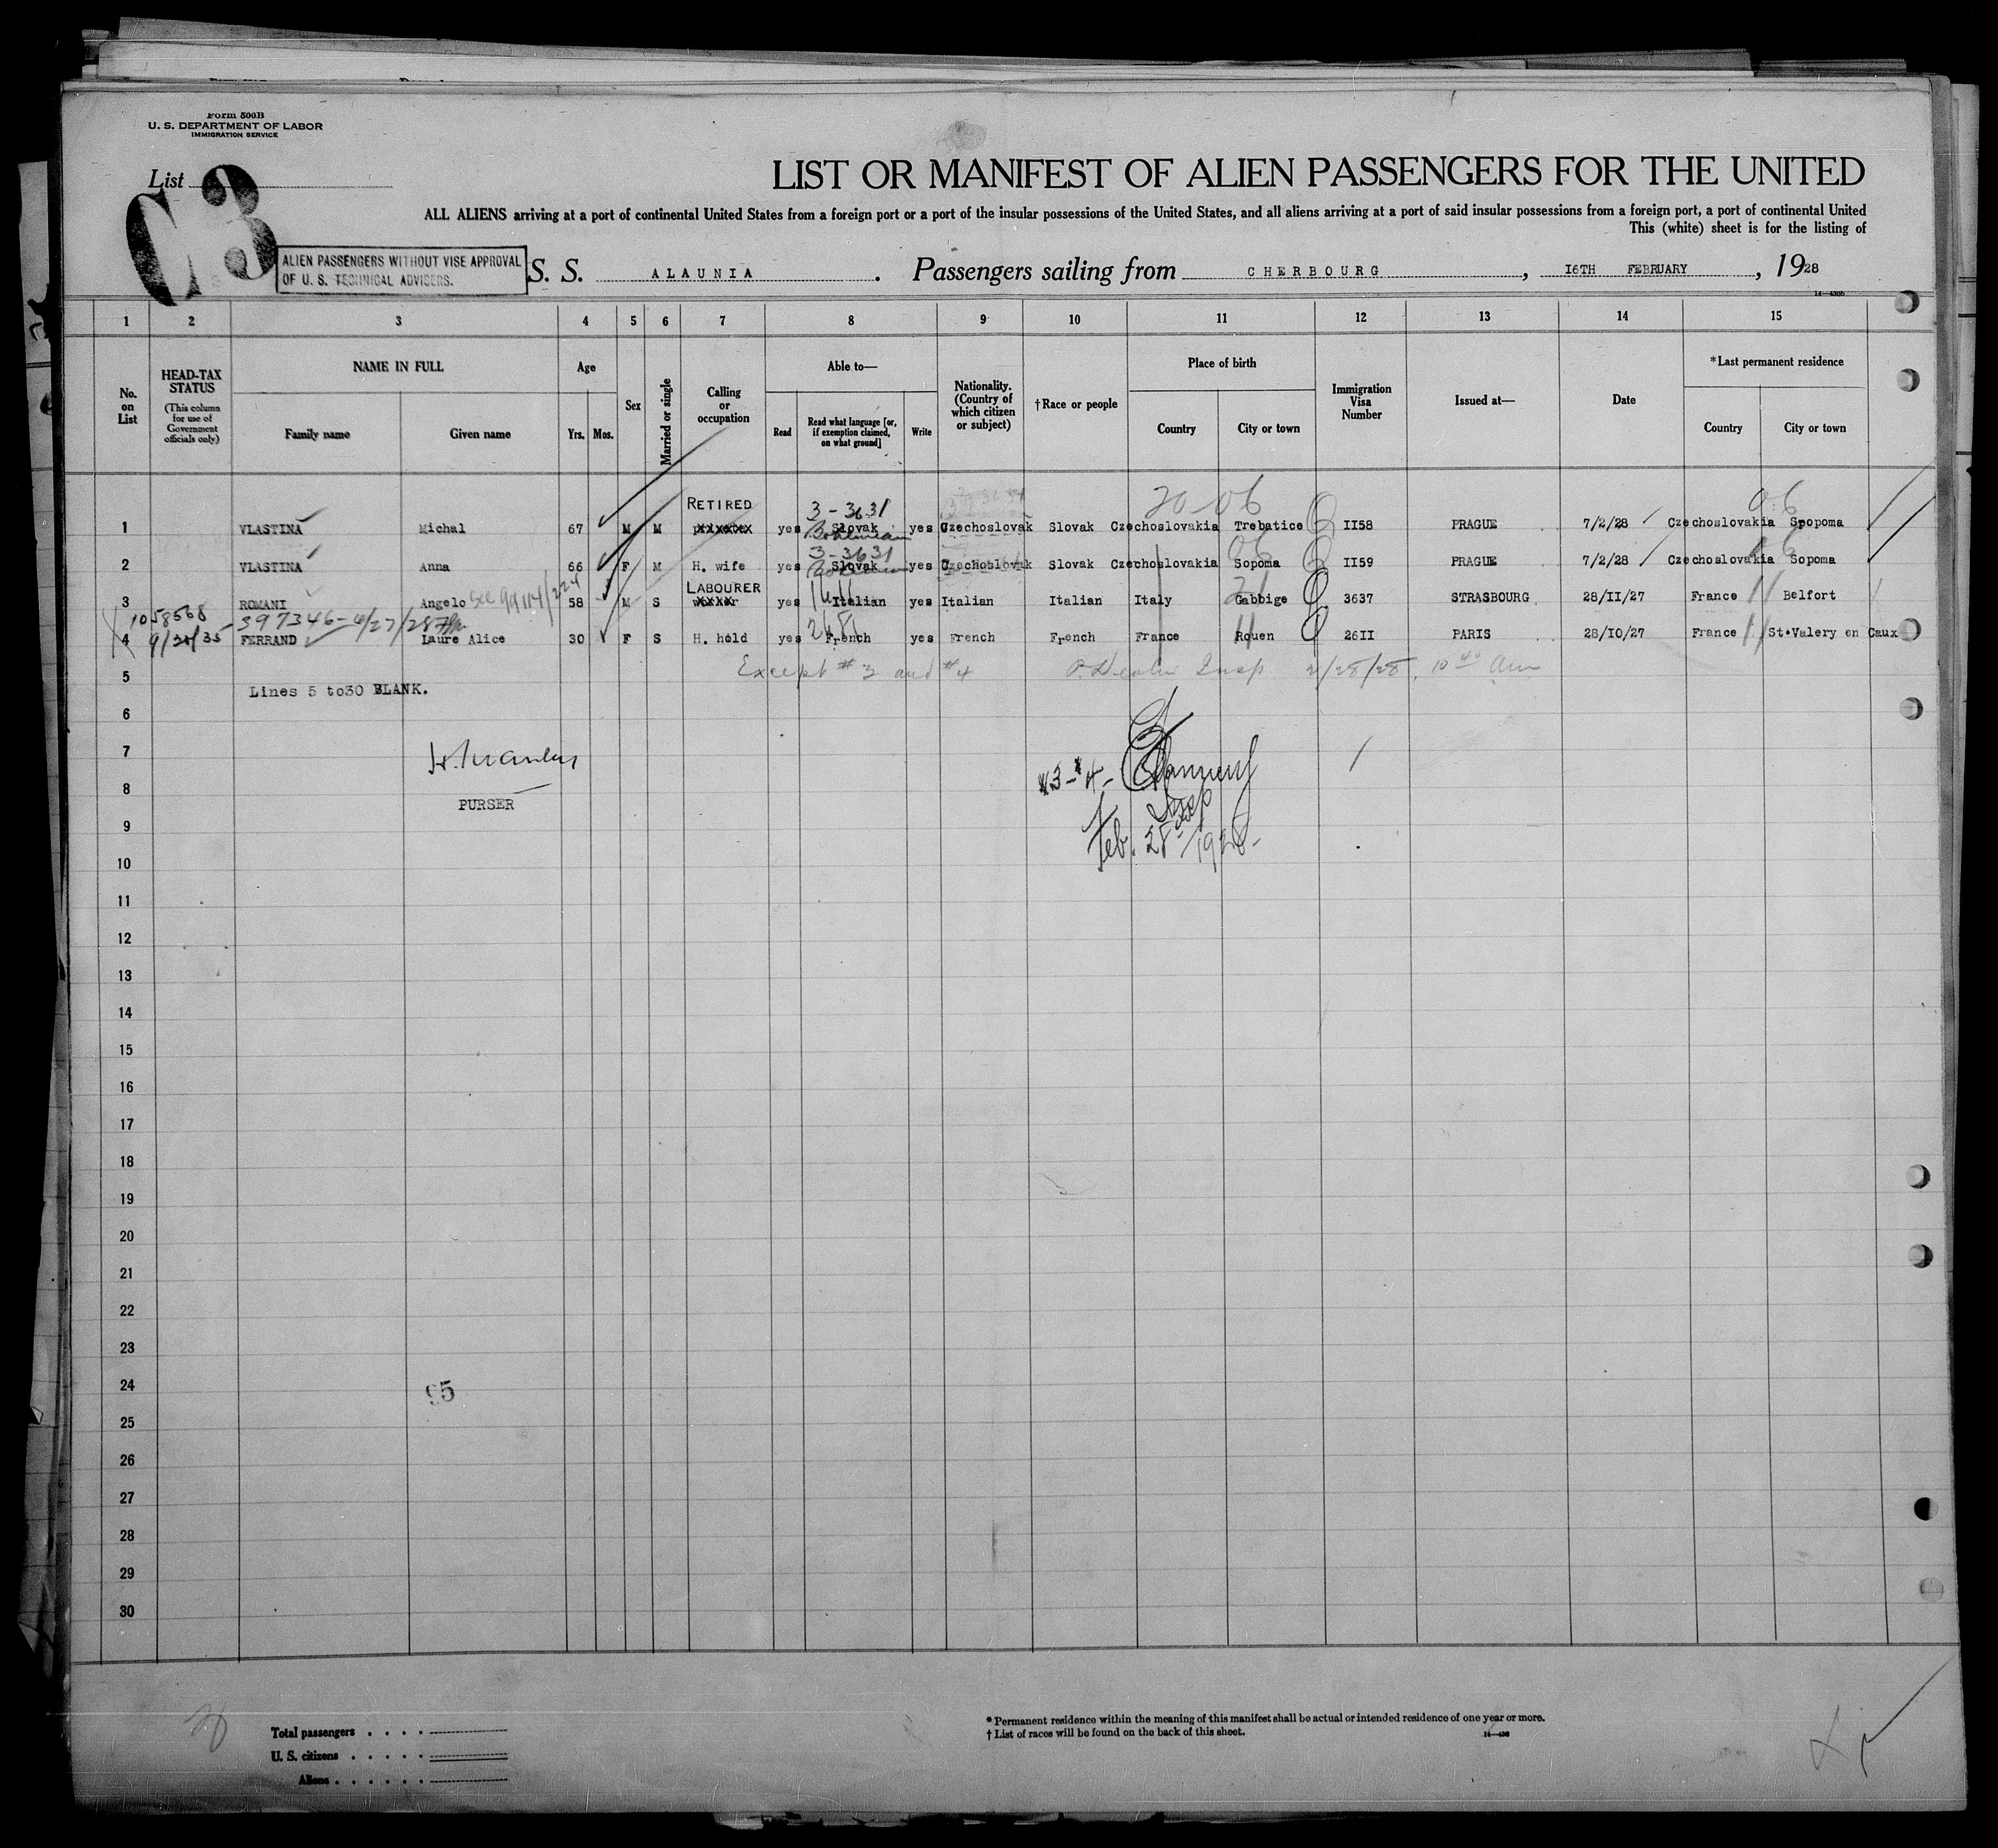 Form 500B
U. S. DEPARTMENT OF LABOR
IMMIGRATION SERVICE
List
3
LIST OR MANIFEST OF ALIEN PASSENGERS FOR THE UNITED
ALL ALIENS arriving at a port of continental United States from a foreign port or a port of the insular possessions of the United States, and all aliens arriving at a port of said insular possessions from a foreign port, a port of continental United
This (white) sheet is for the listing of
ALIEN PASSENGERS WITHOUT VISE APPROVAL
OF U. S. TECHNICAL ADVISERS.
S. S. ALAUNIA. Passengers sailing from CHERBOURG, I6TH FEBRUARY, 1928
1 2 3 4 5 6 7 8 9 10 11 12 13 14 15
No. on List
HEAD-TAX STATUS
(This column for use of Government officials only)
NAME IN FULL
Family name Given name
Age
Yrs. Mos.
Sex
Married or single
Calling or occupation
Able to—
Read
Read what language [or, if exemption claimed, on what ground]
Write
Nationality. (Country of which citizen or subject)
†Race or people
Place of birth
Country City or town
Immigration Visa Number
Issued at—
Date
*Last permanent residence
Country City or town
RETIRED 3-3631 20 06 06
1 VLASTINA Michal 67 M M yes Slovak yes Czechoslovak Slovak Czechoslovakia Trebatice II58 PRAGUE 7/2/28 Czechoslovakia Spopoma
Bohemian
3-3631 06 06
2 VLASTINA Anna 66 F M H. wife yes Slovak yes Czechoslovak Slovak Czechoslovakia Sopoma II59 PRAGUE 7/2/28 Czechoslovakia Sopoma
Bohemian
LABOURER
3 ROMANI Angelo see 99114/224 58 M S yes Italian yes Italian Italian Italy Gabbige 3637 STRASBOURG 28/II/27 France Belfort
1058568 397346-4/27/28
4 9/20/35 FERRAND Laure Alice 30 F S H. hold yes French yes French French France Rouen 26II PARIS 28/I0/27 France St.Valery en Caux
5 Except #3 and #4 Insp 2/28/28, 10 40 Am
Lines 5 to30 BLANK.
6
7
8
PURSER
#3-#4-
Insp
Feb. 28 1928-
9
10
11
12
13
14
15
16
17
18
19
20
21
22
23
24
95
25
26
27
28
29
30
Total passengers
U. S. citizens
Aliens
* Permanent residence within the meaning of this manifest shall be actual or intended residence of one year or more.
† List of races will be found on the back of this sheet.